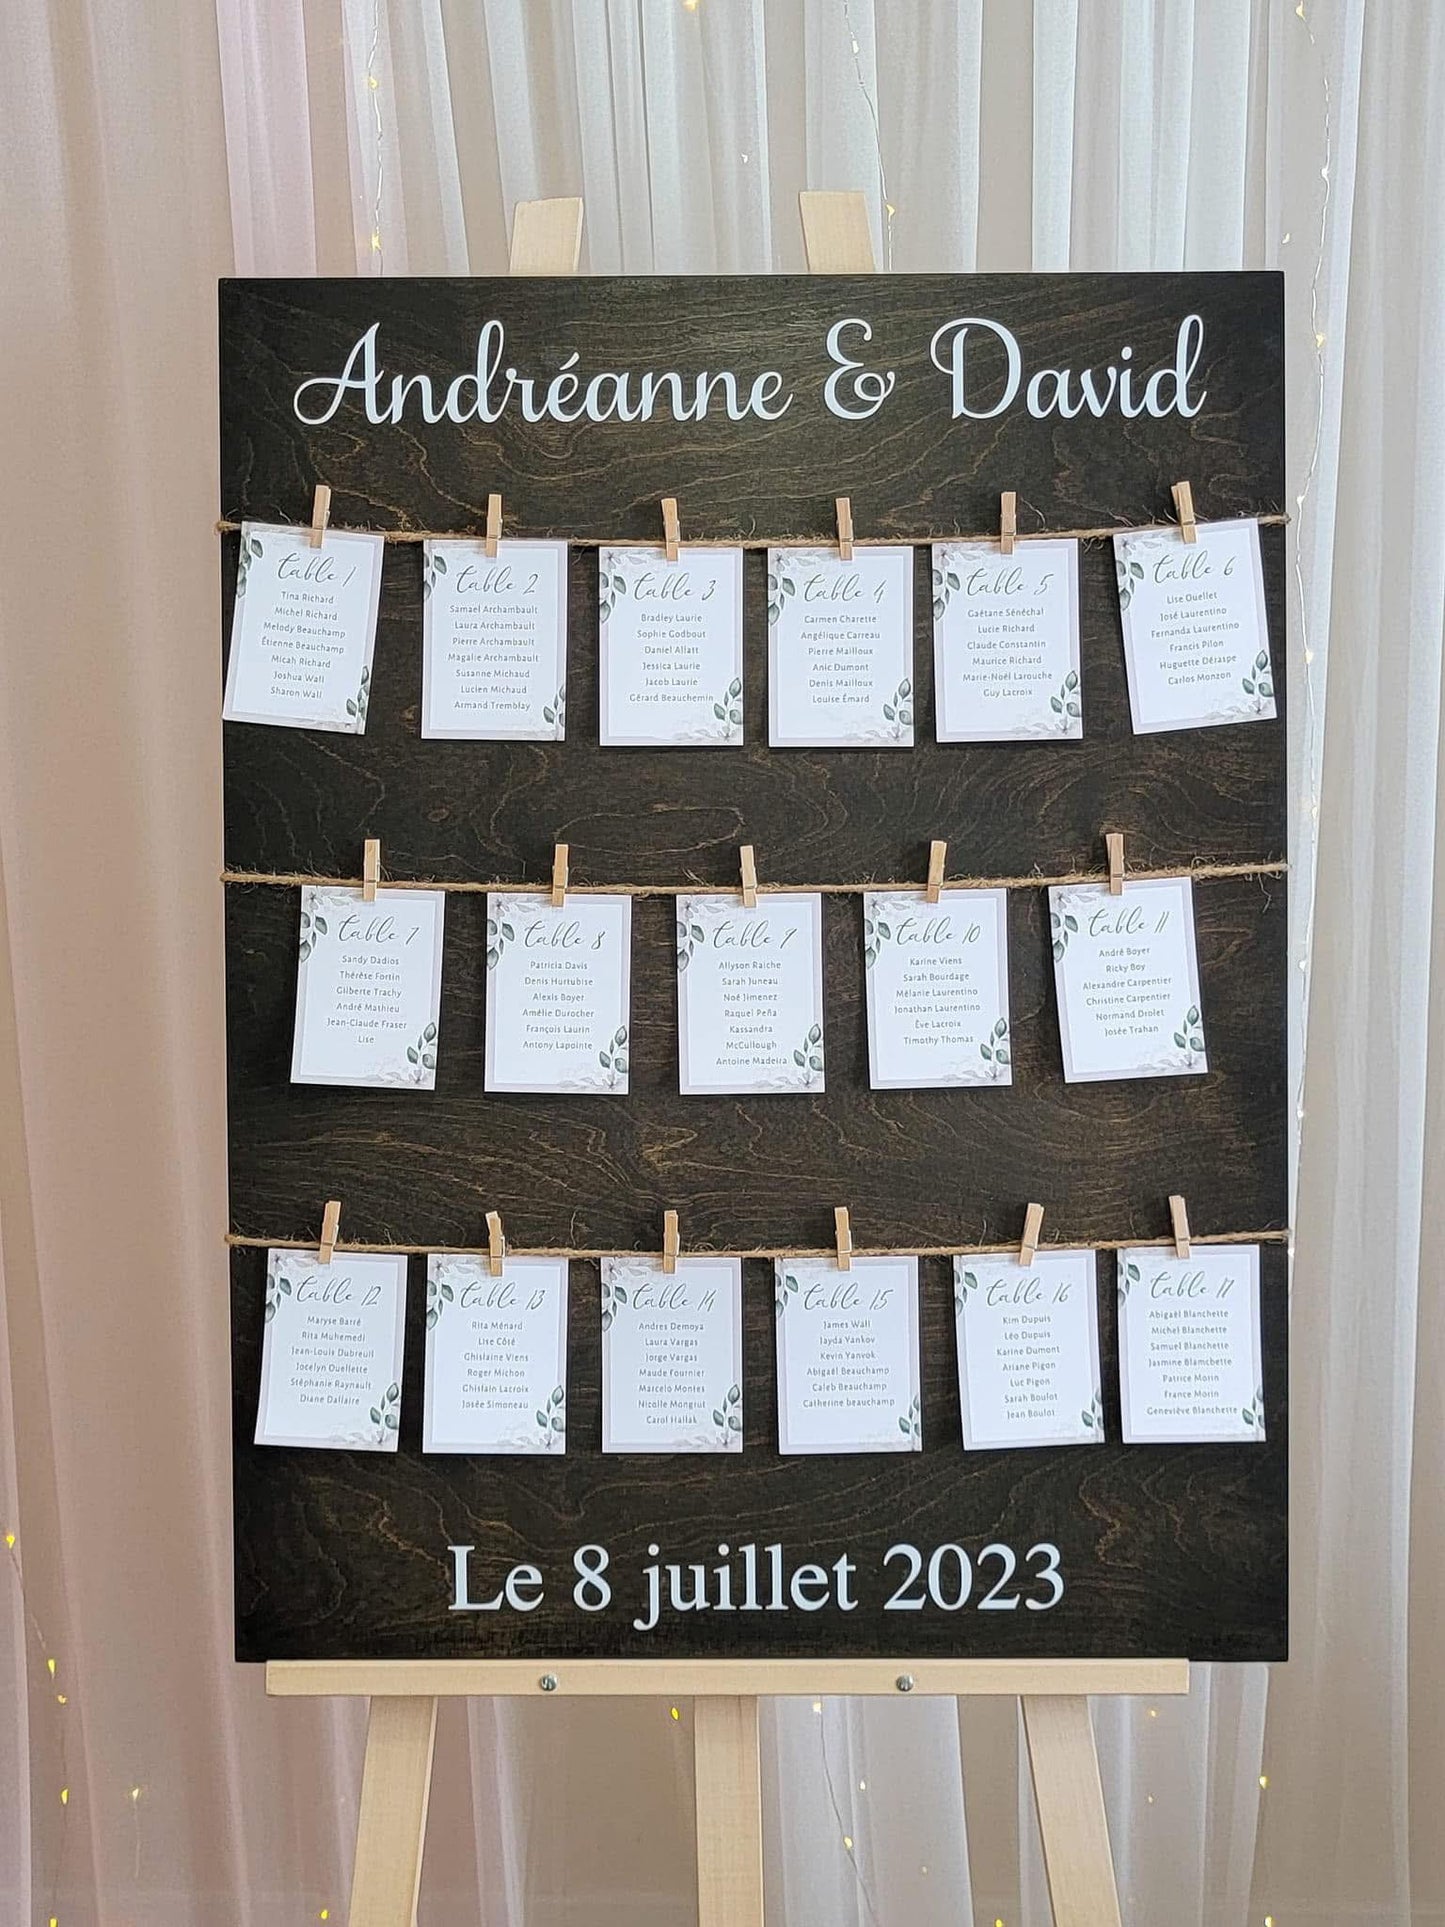 Andréanne & David
table 1
Tina Richard
Michel Richard
Melody Beauchamp
Étienne Beauchamp
Micah Richard
Joshua Wall
Sharon Wall
table 2
Samael Archambault
Laura Archambault
Pierre Archambault
Magalie Archambault
Susanne Michaud
Lucien Michaud
Armand Tremblay
table 3
Bradley Laurie
Sophie Godbout
Daniel Allatt
Jessica Laurie
Jacob Laurie
Gérard Beauchemin
table 4
Carmen Charette
Angélique Carreau
Pierre Mailloux
Anic Dumont
Denis Mailloux
Louise Émard
table 5
Gaëtane Sénéchal
Lucie Richard
Claude Constantin
Maurice Richard
Marie-Noël Larouche
Guy Lacroix
table 6
Lise Ouellet
José Laurentino
Fernanda Laurentino
Francis Pilon
Huguette Déraspe
Carlos Monzon
table 7
Sandy Dadios
Thérèse Fortin
Gilberte Trachy
André Mathieu
Jean-Claude Fraser
Lise
table 8
Patricia Davis
Denis Hurtubise
Alexis Boyer
Amélie Durocher
François Laurin
Antony Lapointe
table 9
Allyson Raiche
Sarah Juneau
Noé Jimenez
Raquel Peña
Kassandra
McCullough
Antoine Madeira
table 10
Karine Viens
Sarah Bourdage
Mélanie Laurentino
Jonathan Laurentino
Ève Lacroix
Timothy Thomas
table 11
André Boyer
Ricky Boy
Alexandre Carpentier
Christine Carpentier
Normand Drolet
Josée Trahan
table 12
Maryse Barré
Rita Muhemedi
Jean-Louis Dubreuil
Jocelyn Ouellette
Stéphanie Raynault
Diane Dallaire
table 13
Rita Ménard
Lise Côté
Ghislaine Viens
Roger Michon
Ghislain Lacroix
Josée Simoneau
table 14
Andres Demoya
Laura Vargas
Jorge Vargas
Maude Fournier
Marcelo Montes
Nicolle Mongrut
Carol Hallak
table 15
James Wall
Jayda Yankov
Kevin Yanvok
Abigaël Beauchamp
Caleb Beauchamp
Catherine beauchamp
table 16
Kim Dupuis
Léo Dupuis
Karine Dumont
Ariane Pigon
Luc Pigon
Sarah Boulot
Jean Boulot
table 17
Abigaël Blanchette
Michel Blanchette
Samuel Blanchette
Jasmine Blamcbette
Patrice Morin
France Morin
Geneviève Blanchette
Le 8 juillet 2023